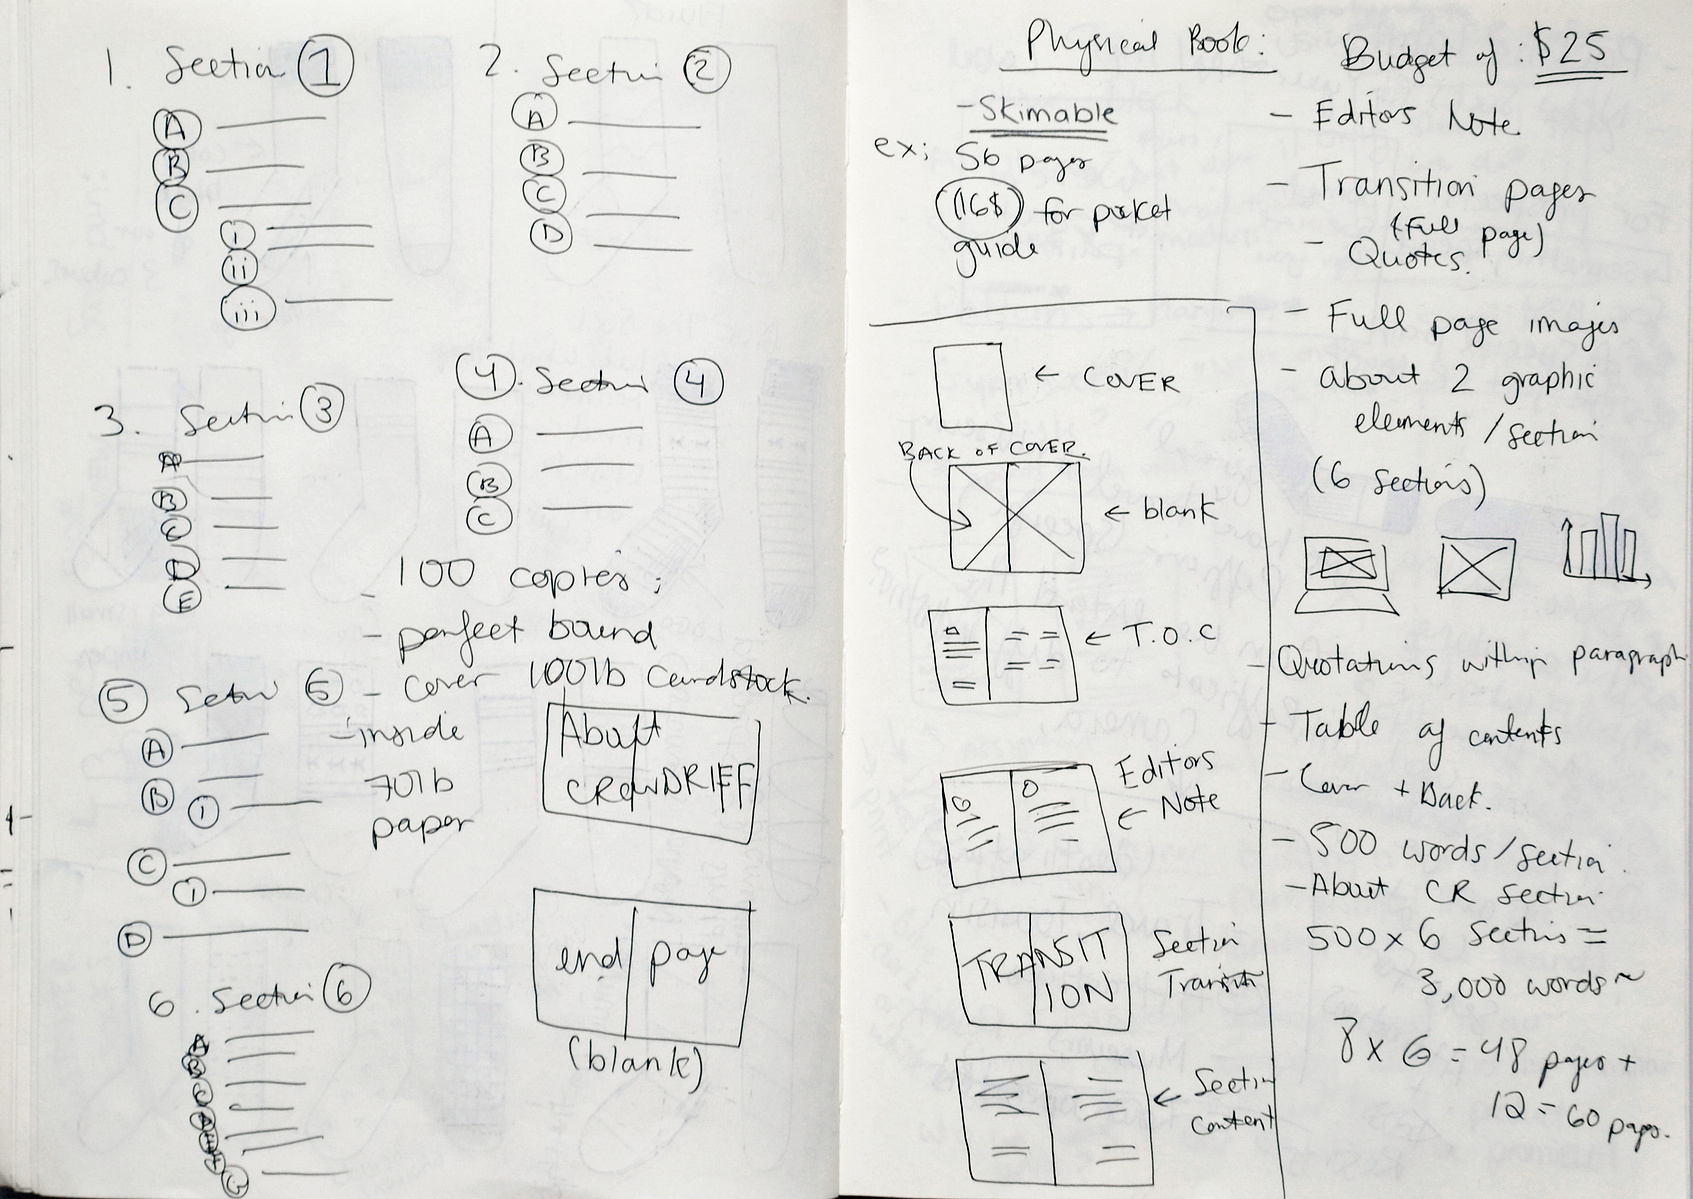 1. Section 1
A
B
C
i
ii
iii
2. Section 2
A
B
C
D
3. Section 3
A
B
C
D
E
4. Section 4
A
B
C
- 100 copies;
- perfect bound
- cover 100lb Cardstock.
- inside
70lb
paper
5 Section
A
B
1
C
1
D
6. Section 6
A
B
C
D
E
F
G
About
CROWDRIFF
end page
(blank)
Physical Book:
- Skimable
ex: 56 pages
(16$) for pocket
guide
← COVER
BACK OF COVER.
← blank
← T.O.C
Editors
← Note
TRANSIT
ION
Section
Transition
← Section
Content
Budget of: $25
- Editors Note
- Transition pages
(Full page)
- Quotes.
- Full page images
- about 2 graphic
elements / section
(6 Sections)
- Quotations within paragraph
- Table of contents
- Cover + Back.
- 500 words/section.
- About CR section
500 x 6 sections =
3,000 words ~
8 x 6 = 48 pages +
12 = 60 pages.